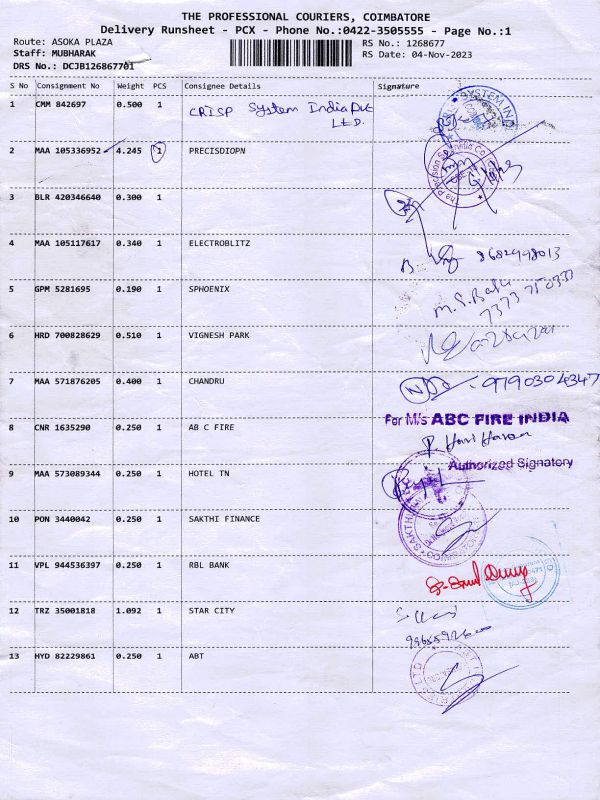 THE PROFESSIONAL COURIERS, COIMBATORE
Delivery Runsheet - PCX - Phone No.:0422-3505555 - Page No.:1
Route: ASOKA PLAZA
Staff: MUBHARAK
DRS No.: DCJB126867701
RS No.: 1268677
RS Date: 04-Nov-2023
S No Consignment No Weight PCS Consignee Details Signature
1 CMM 842697 0.500 1 CRISP System India Pvt
LTD.
2 MAA 105336952 4.245 1 PRECISDIOPN
3 BLR 420346640 0.300 1
4 MAA 105117617 0.340 1 ELECTROBLITZ 8682498013
5 GPM 5281695 0.190 1 SPHOENIX
7373750333
6 HRD 700828629 0.510 1 VIGNESH PARK
7 MAA 571876205 0.400 1 CHANDRU 9790304347
8 CNR 1635290 0.250 1 AB C FIRE For M/s ABC FIRE INDIA
P. Hari Haran
Authorized Signatory
9 MAA 573089344 0.250 1 HOTEL TN
10 PON 3440042 0.250 1 SAKTHI FINANCE
11 VPL 944536397 0.250 1 RBL BANK
12 TRZ 35001818 1.092 1 STAR CITY
13 HYD 82229861 0.250 1 ABT